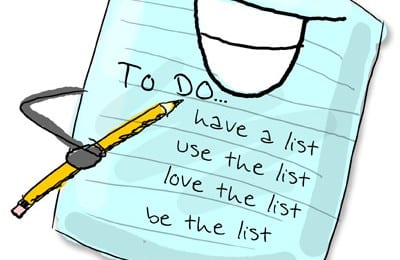 To Do...
have a list
use the list
love the list
be the list